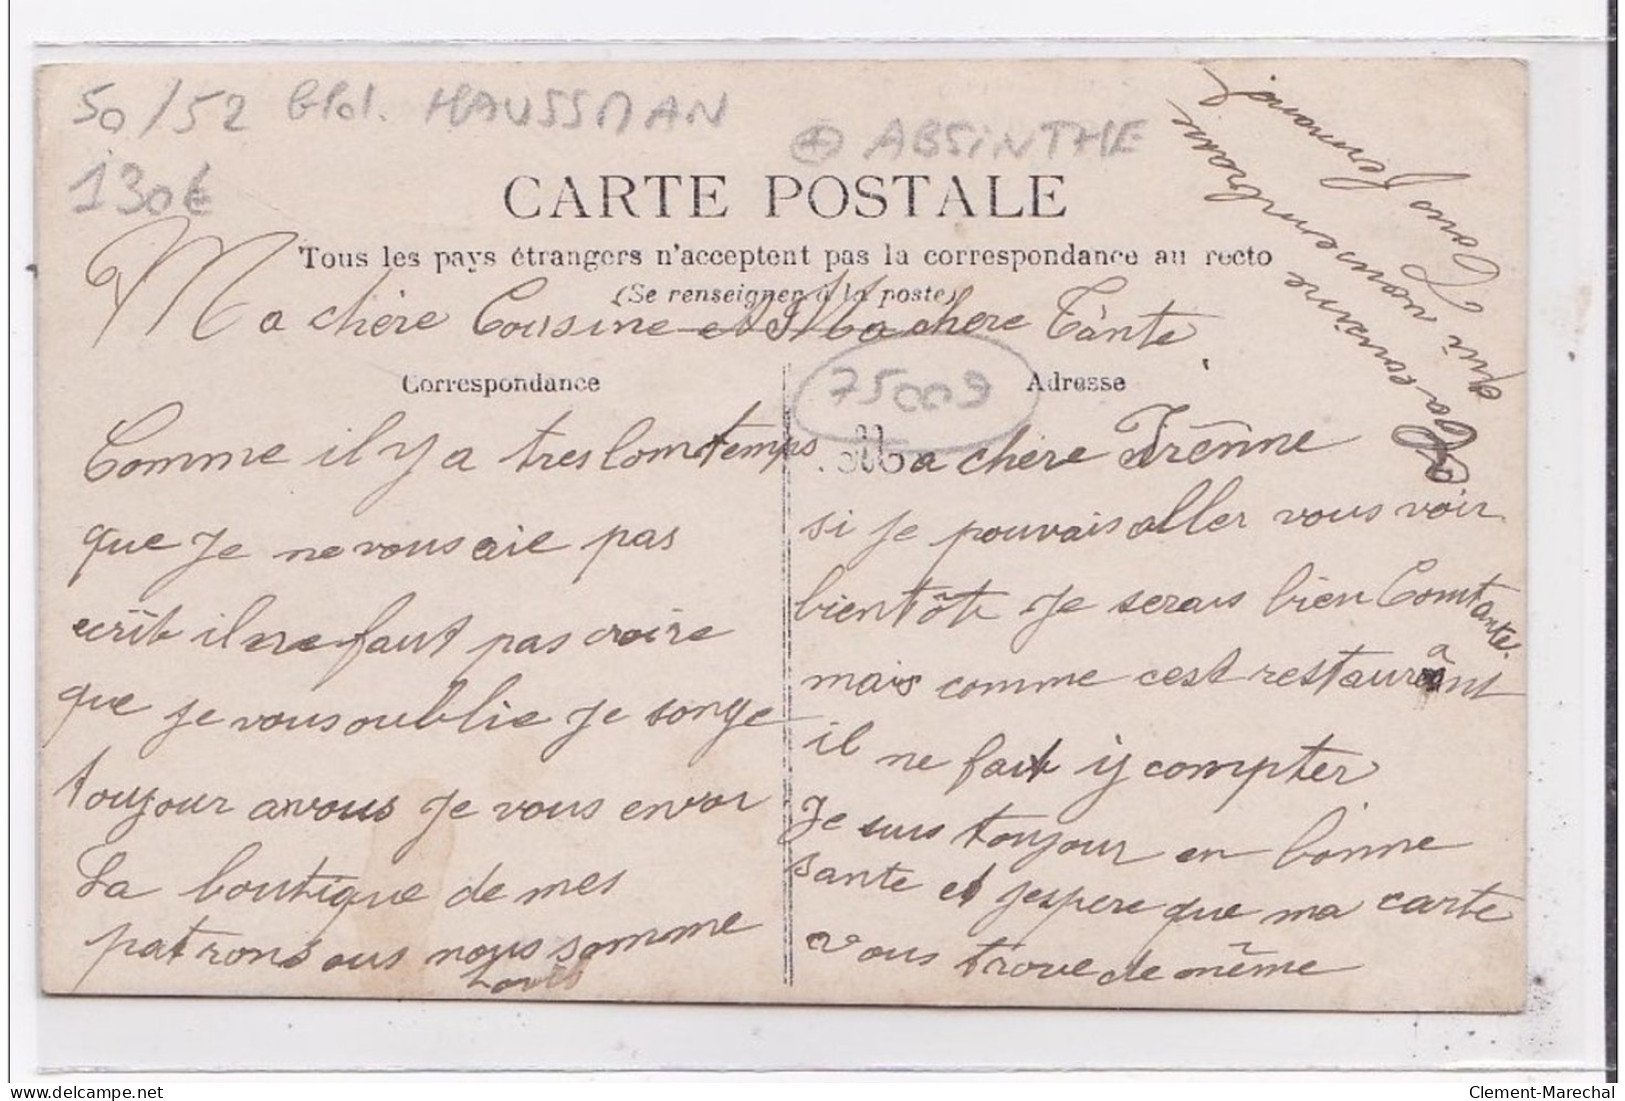 50/52 Bld. HAUSSMAN
130€
⊕ ABSINTHE
CARTE POSTALE
Tous les pays étrangers n'acceptent pas la correspondance au recto
(Se renseigner à la poste)
Ma chère Cousine et Ma chere Tante
Correspondance
75009
Adresse
Comme il y a tres lomtemps
que je ne vous aie pas
ecrit il ne faut pas croire
que je vous oublie je songe
toujour a vous je vous envoi
La boutique de mes
patrons ous nous somme
tous
Ma chere Irênne
si je pouvais aller vous voir
bientôt je serais bien Comtante.
mais comme cest restaurant
il ne faut y compter
Je suis toujour en bonne
sante et jespere que ma carte
vous trove de même
Ta cousine
qui vous embrasse
Tous